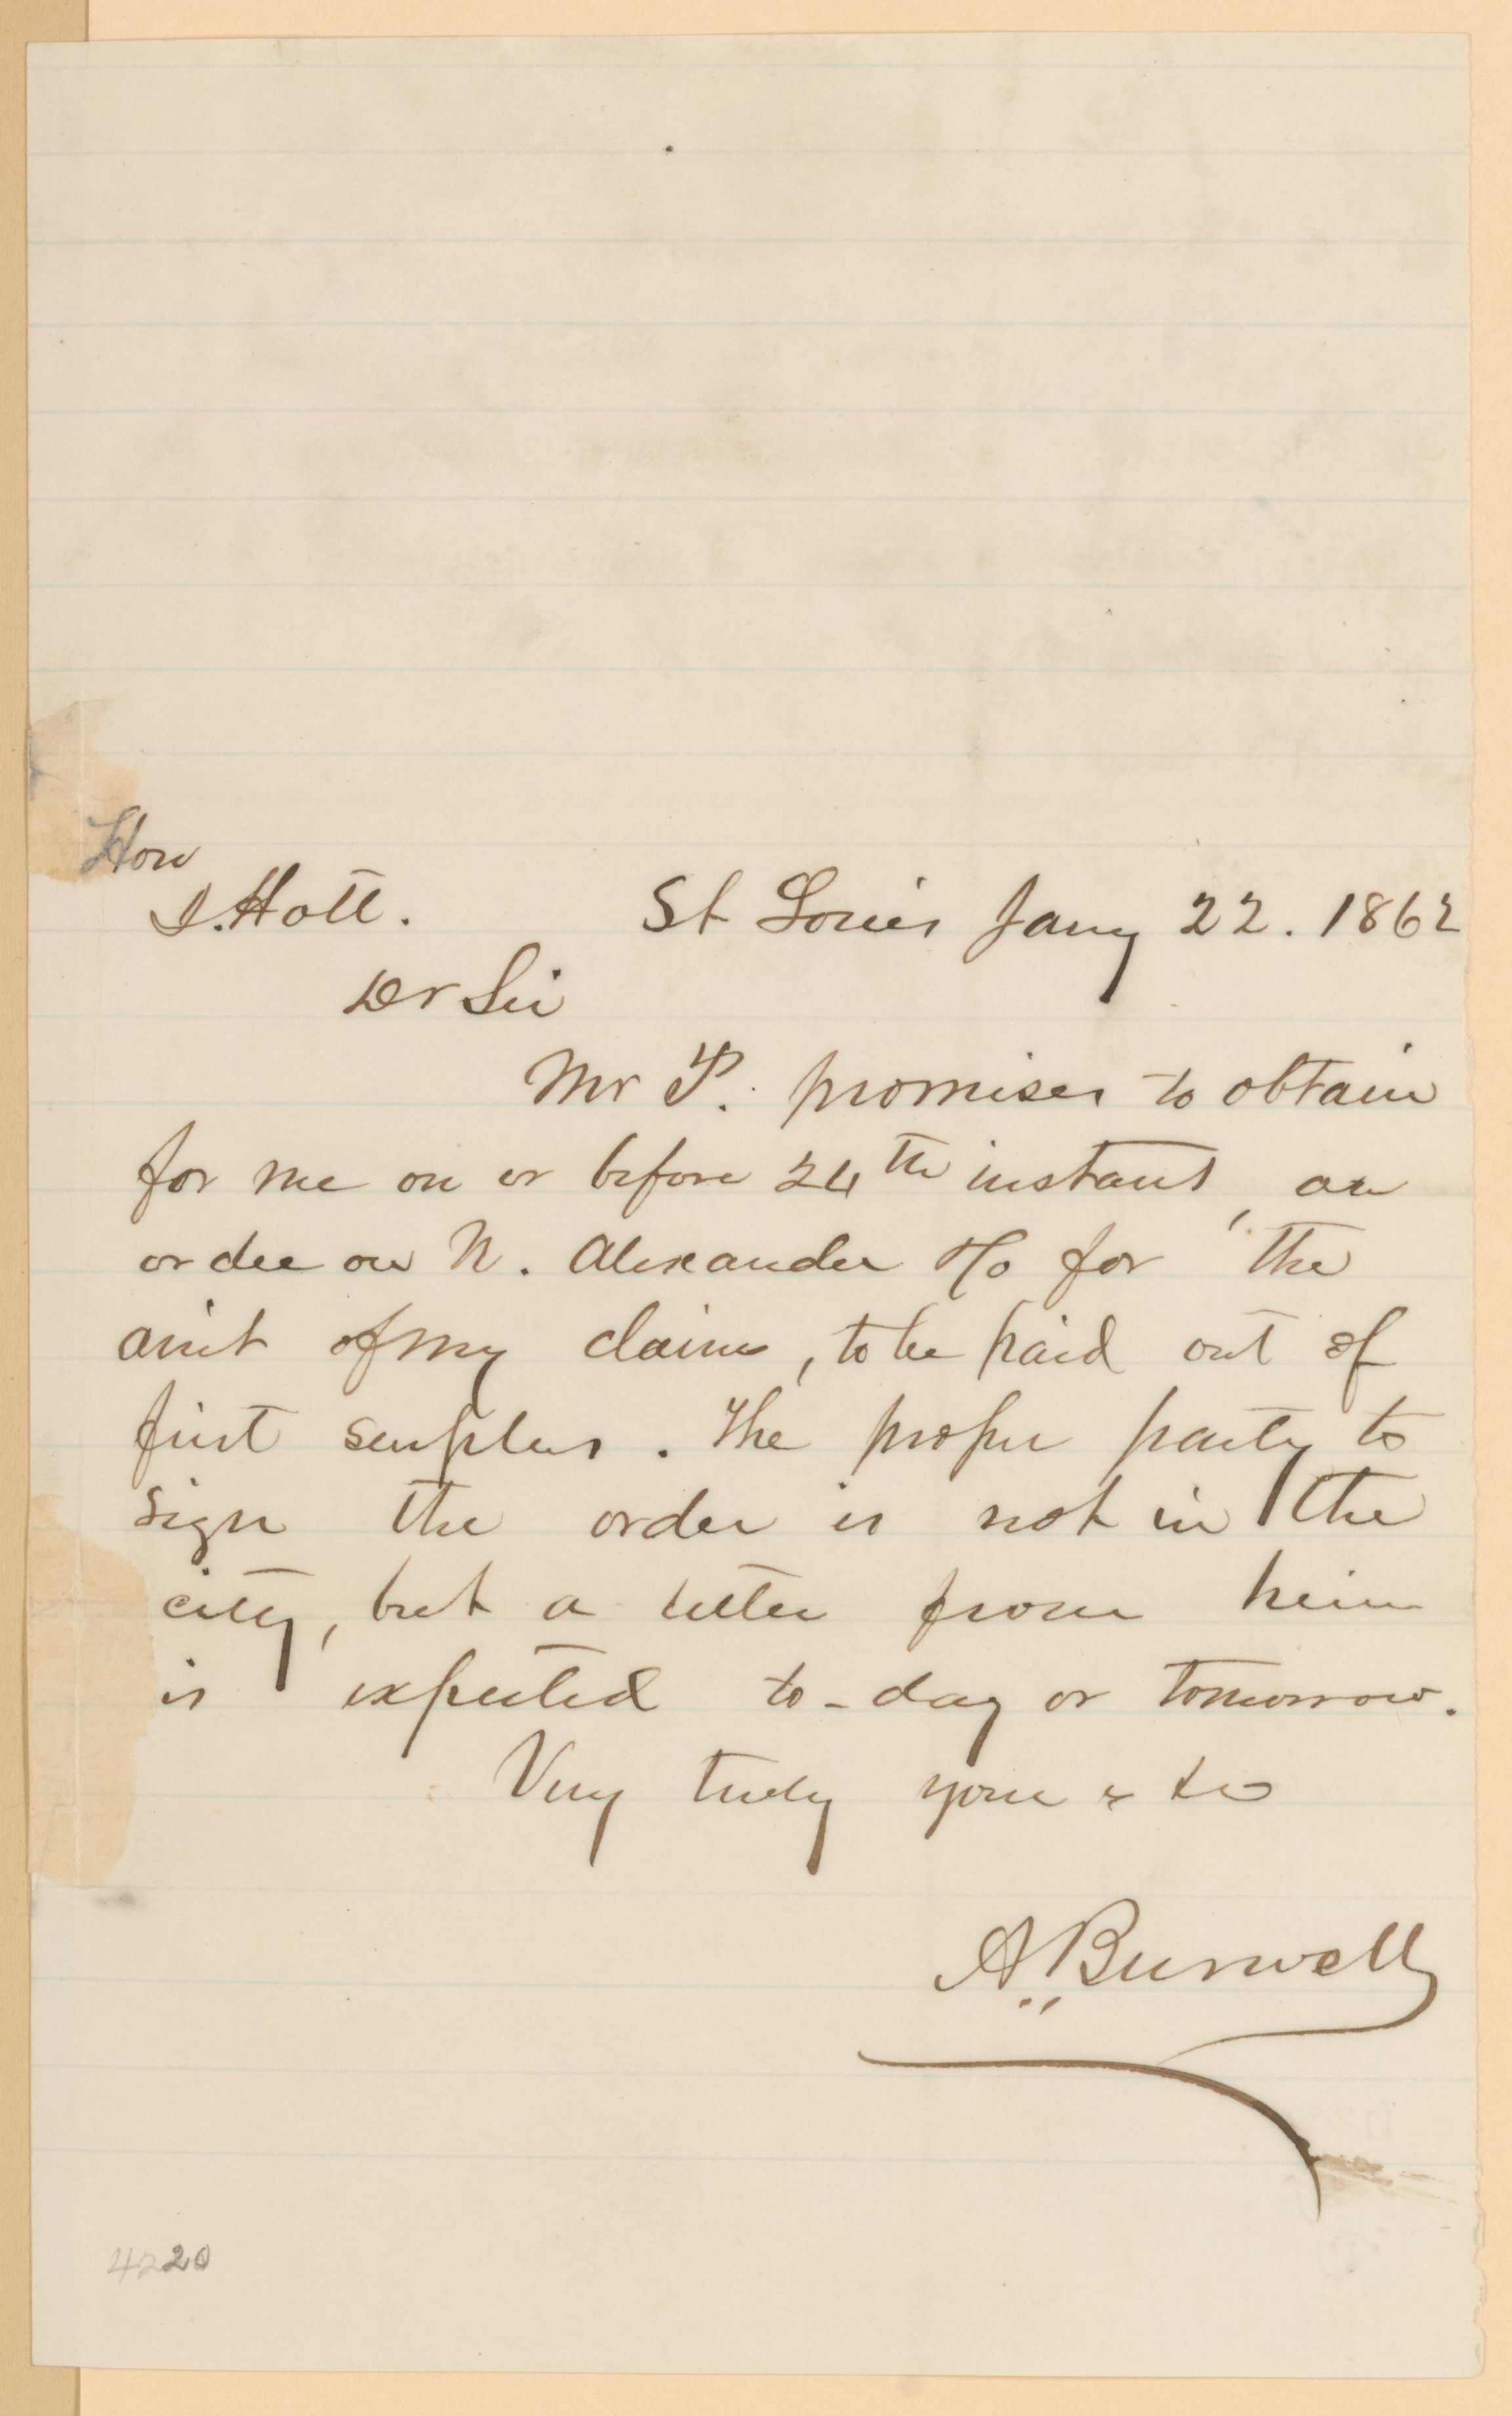 Hon
J. Holt.
St Louis Jany 22. 1862
Dr Sir
Mr P. promises to obtain
for me on or before 24th instant, an
order on N. Alexander for the
am't of my claim, to be paid out of
first surplus. The proper party to
sign the order is not in the
city, but a letter from him
is expected to-day or tomorrow.
Very truly yours &c
A. Burwell
4220